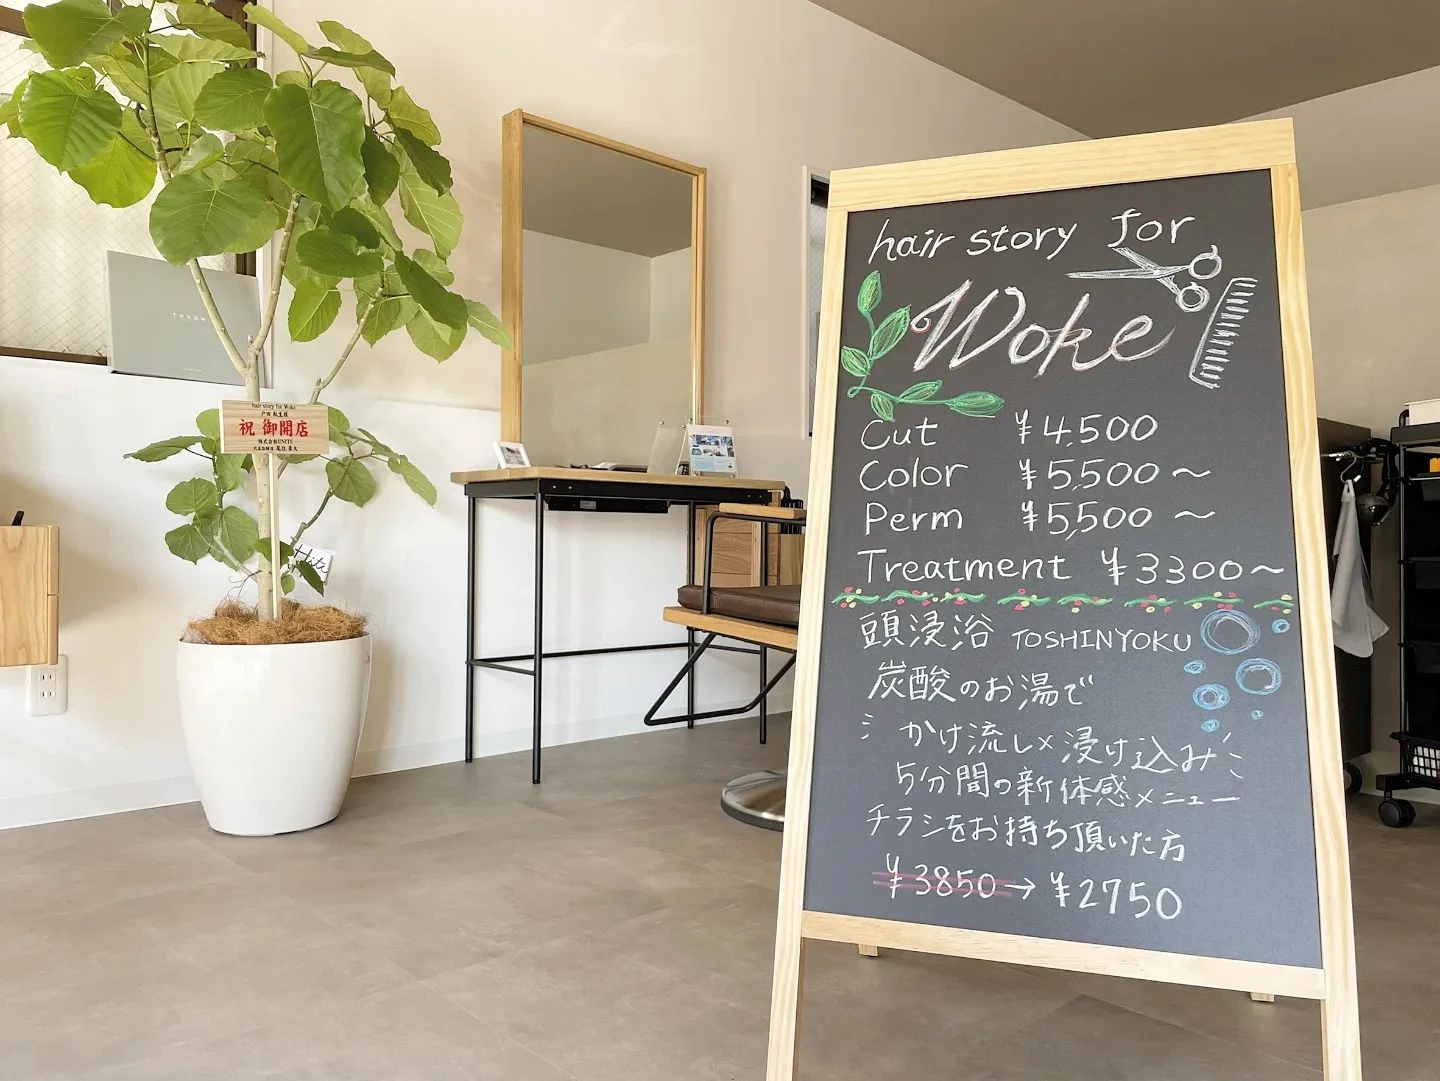 hair story for
Woke
Cut ¥4,500
Color ¥5,500～
Perm ¥5,500～
Treatment ¥3300～
頭浸浴 TOSHINYOKU
炭酸のお湯で
かけ流し×浸け込み
5分間の新体感メニュー
チラシをお持ち頂いた方
¥3850→¥2750
hair story for Woke
祝 御開店
株式会社UNITE